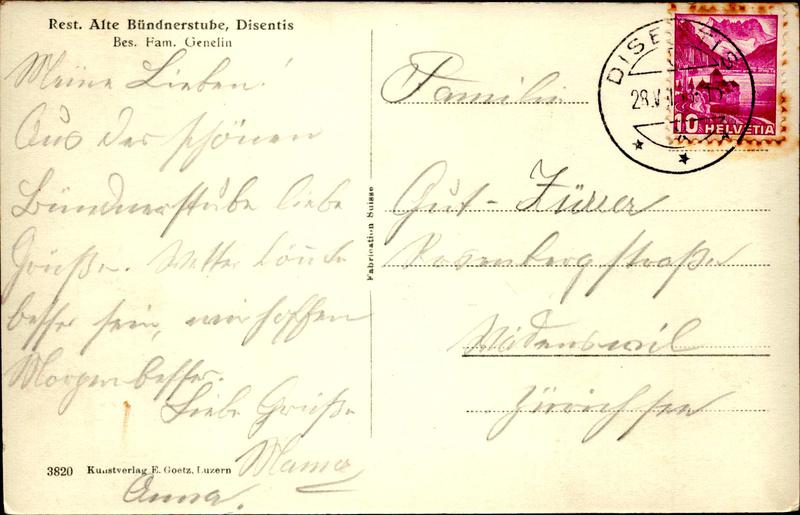 Rest. Alte Bündnerstube, Disentis
Bes. Fam. Genelin
Meine Lieben!
Aus der schönen
Bündnerstube liebe
Grüße. Wetter könnte
besser sein, wir hoffen
Morgen besser.
Liebe Grüße
Mama
Anna.
3820 Kunstverlag E. Goetz, Luzern
Fabrication Suisse
Familie
Gut-Zürrer
Rosenbergstraße
Wädenswil
Zürichsee
DISENTIS
28.V
10 HELVETIA